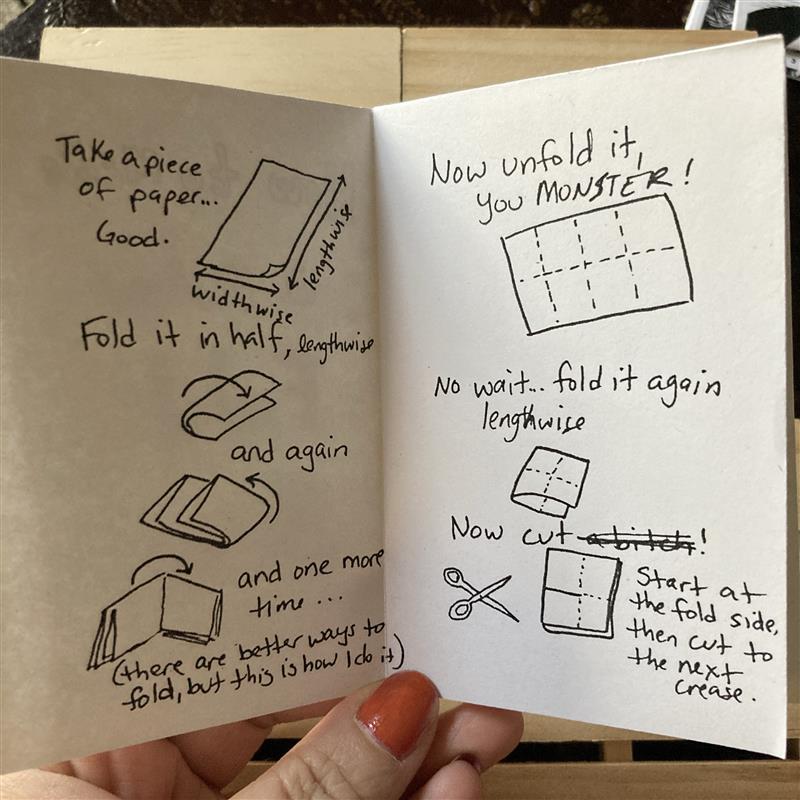 Take a piece
of paper...
Good.
widthwise
lengthwise
Fold it in half, lengthwise
and again
and one more
time ...
(there are better ways to
fold, but this is how I do it)
Now unfold it,
you MONSTER!
No wait... fold it again
lengthwise
Now cut a bitch!
Start at
the fold side,
then cut to
the next
crease.